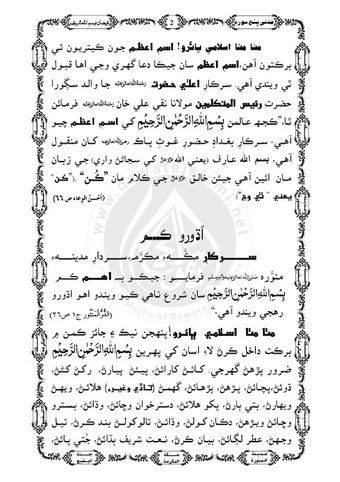 فيضانِ بسم الله شريف 2 مدني پنج سورہ
منا منا اسلامي ڀائرو! اسمِ اعظم جون ڪيتريون ئي
برڪتون آهن، اسمِ اعظم سان جيڪا دعا گهري وڃي اها قبول
ٿي ويندي آهي. سرڪارِ اعليٰ حضرت رحمة الله عليه جا والد سڳورا
حضرت رئيس المتكلمين مولانا نقي علي خان فرمائن
ٿا، ”ڪجهہ عالمن بِسْمِ اللهِ الرَّحْمٰنِ الرَّحِيْمِ کي اسم اعظم چيو
آهي. سرڪارِ بغداد حضورِ غوثِ پاڪ کان منقول
آهي، بسم الله عارف (يعني الله عزوجل کي سڃاڻڻ واري) جي زبان
مان ائين آهي جيئن خالق عزوجل جي ڪلام مان ”كُن“. (”كن“
يعني ” ٿي وڃ“) (احسن الوعاء ص ٦٦)
اَڌورو ڪم
سرڪارِ مڪّہ، مڪرّم، سردارِ مدينہ،
منوّره فرمايو: جيڪو بہ اهم ڪم
بِسْمِ اللهِ الرَّحْمٰنِ الرَّحِيْمِ سان شروع ناهي ڪيو ويندو اهو اڌورو
رهجي ويندو آهي.“ (الدر المنثور ج١ ص٢٦)
منا منا اسلامي ڀائرو! پنهنجن نيڪ ۽ جائز ڪمن ۾
برڪت داخل ڪرڻ لاءِ اسان کي پهرين بِسْمِ اللهِ الرَّحْمٰنِ الرَّحِيْمِ
ضرور پڙهڻ گهرجي. کائڻ کارائڻ، پيئڻ پيارڻ، رکڻ کڻڻ،
ڌوئڻ، پچائڻ، پڙهڻ، پڙهائڻ، گهمڻ (گاڏي وغيره) هلائڻ، ويهڻ
ويهارڻ، بتي ٻارڻ، پکو هلائڻ، دسترخوان وڇائڻ، وڌائڻ، بسترو
وڇائڻ ويڙهڻ، دڪان کولڻ، وڌائڻ، تالو کولڻ بند ڪرڻ، تيل
وجهڻ، عطر لڳائڻ، بيان ڪرڻ، نعت شريف ٻڌائڻ، جُتي پائڻ،